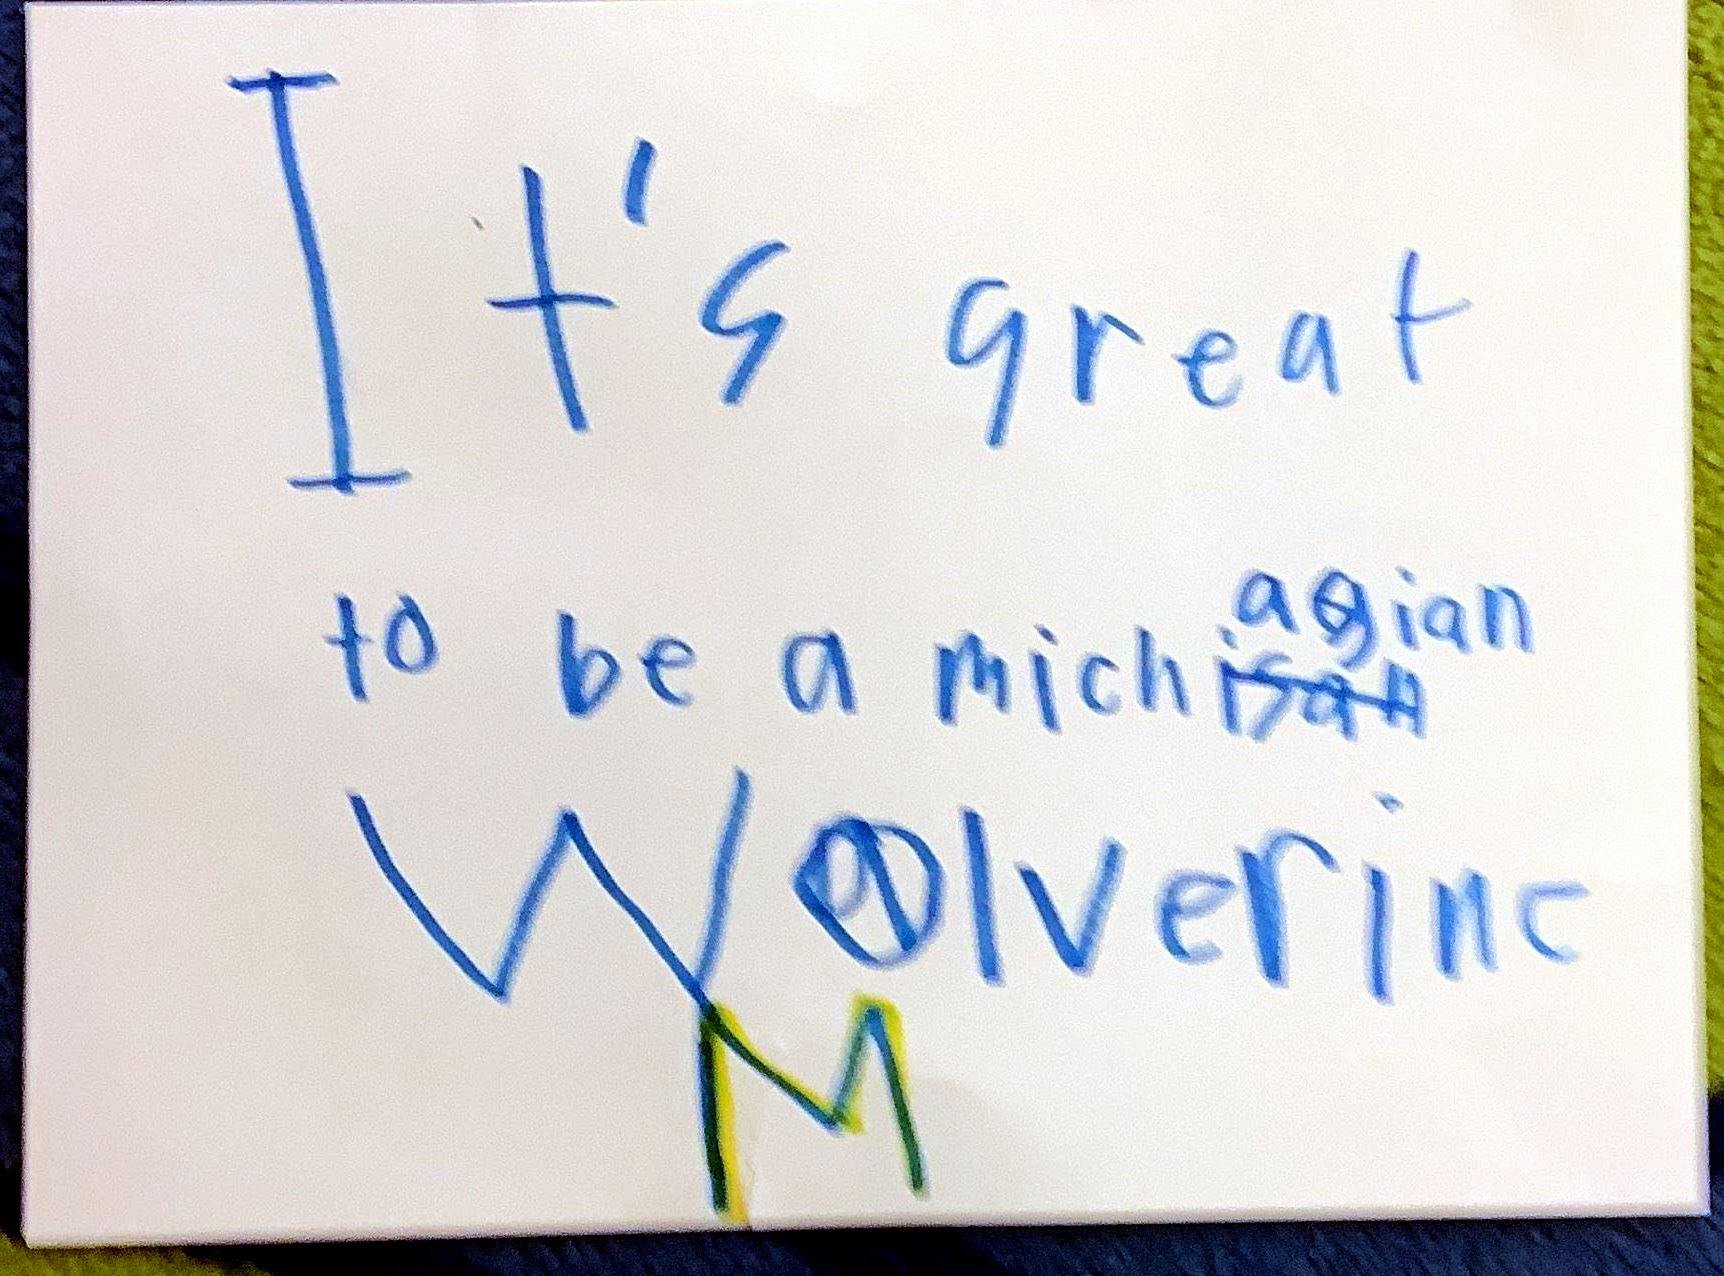 It's great
to be a michagian
Wolverine
M